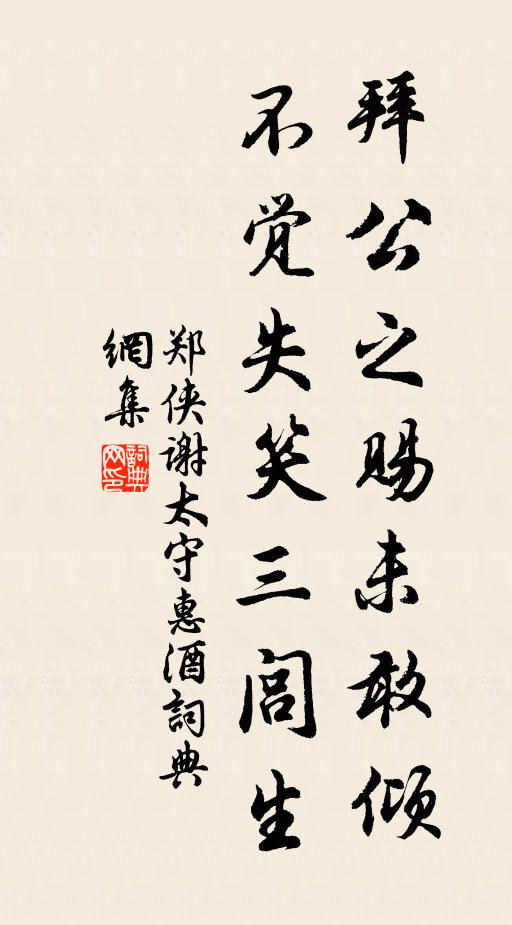 拜公之赐未敢倾
不觉失笑三闾生
郑侠谢太守惠酒詞典
網集
詞典
网印